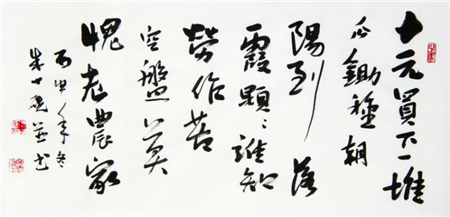 十元買下一堆
瓜鋤種朝
陽到落
霞顆〻誰知
勞作苦
空盤莫
愧老農家
丙申年冬
朱士